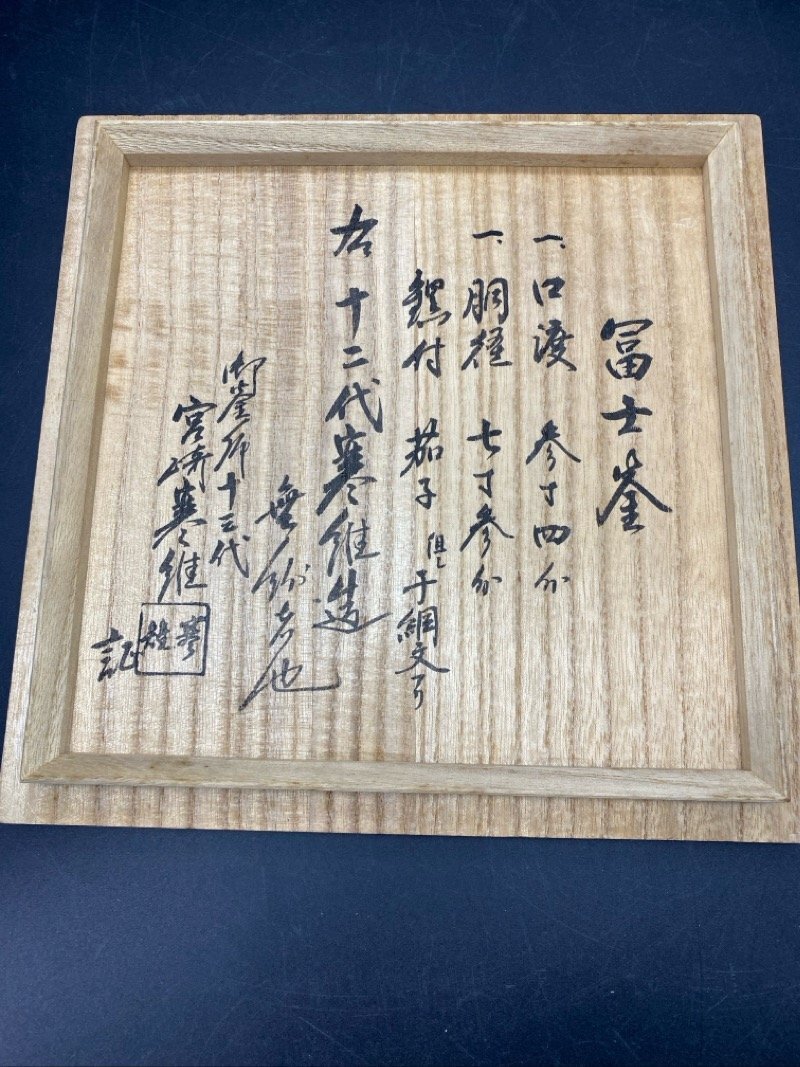 冨士釜
一、口渡 参寸四分
一、胴径 七寸参分
鐶付 茄子 但シ干網文アリ
右十二代寒雉造
無紛者也
御釜师十三代
宮﨑寒雉
寒雉
記